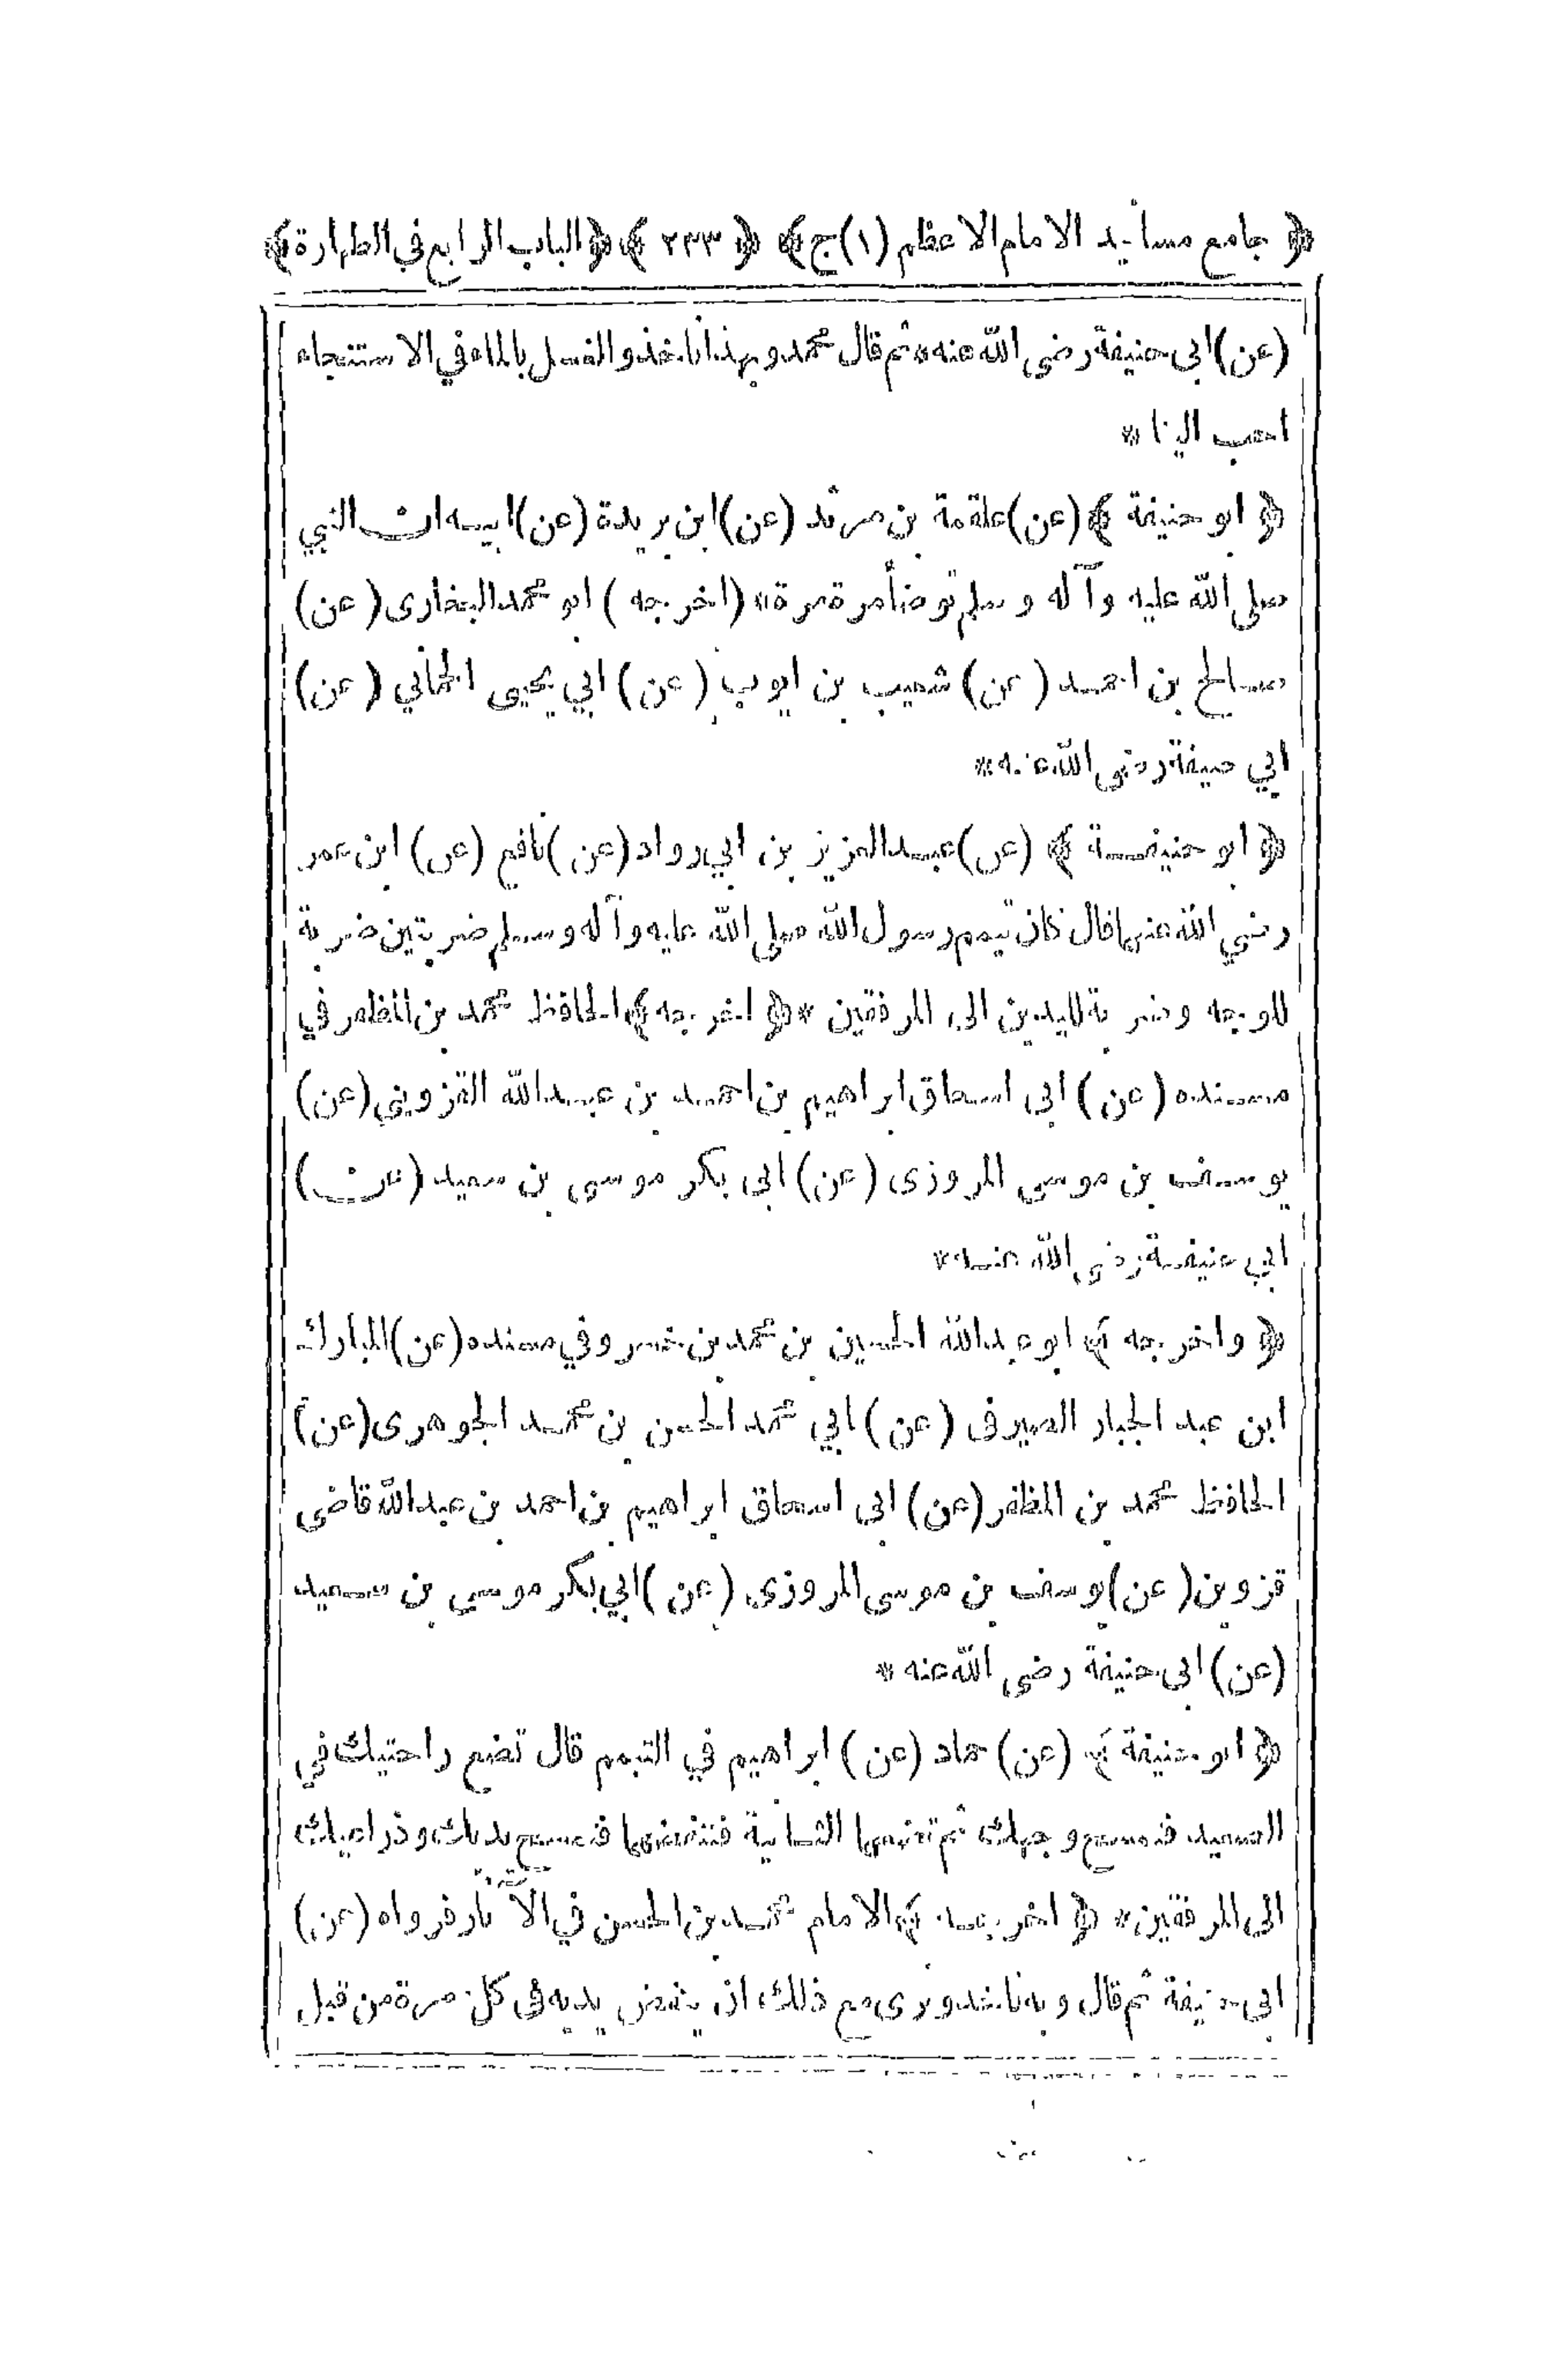 ﴿ جامع مسانيد الامام الاعظم (١) ج ﴾ ﴿ ٢٣٣ ﴾ ﴿ الباب الرابع في الطهارة ﴾
(عن) ابى حنيفة رضى الله عنه * ثم قال محمد وبهذا ناخذ والغسل بالماء في الاستنجاء
احب الينا *
﴿ ابو حنيفة ﴾ (عن) علقمة بن مرثد (عن) ابن بريدة (عن) ابيه ان النبي
صلى الله عليه وآله وسلم توضأ مرة مرة * (اخرجه) ابو محمد البخارى (عن)
صالح بن احمد (عن) شعيب بن ايوب (عن) ابي يحيى الحماني (عن)
ابي حنيفة رضى الله عنه *
﴿ ابو حنيفة ﴾ (عن) عبد العزيز بن ابي رواد (عن) نافع (عن) ابن عمر
رضي الله عنهما قال كان تيمم رسول الله صلى الله عليه وآله وسلم ضربتين ضربة
للوجه وضربة لليدين الى المرفقين * ﴿ اخرجه ﴾ الحافظ محمد بن المظفر في
مسنده (عن) ابى اسحاق ابراهيم بن احمد بن عبد الله القزويني (عن)
يوسف بن موسى المروزى (عن) ابى بكر موسى بن سعيد (عن)
ابي حنيفة رضي الله عنه *
﴿ واخرجه ﴾ ابو عبد الله الحسين بن محمد بن خسرو في مسنده (عن) المبارك
ابن عبد الجبار الصيرفى (عن) ابي محمد الحسن بن محمد الجوهرى (عن)
الحافظ محمد بن المظفر (عن) ابى اسحاق ابراهيم بن احمد بن عبد الله قاضى
قزوين (عن) يوسف بن موسى المروزى (عن) ابي بكر موسى بن سعيد
(عن) ابى حنيفة رضى الله عنه *
﴿ ابو حنيفة ﴾ (عن) حماد (عن) ابراهيم في التيمم قال تضع راحتيك في
الصعيد فتمسح وجهك ثم تضعهما الثانية فتنفضهما فتمسح يديك وذراعيك
الى المرفقين * ﴿ اخرجه ﴾ الامام محمد بن الحسن في الآثار فرواه (عن)
ابى حنيفة ثم قال وبه ناخذ ويرى مع ذلك ان ينفض يديه فى كل مرة من قبل